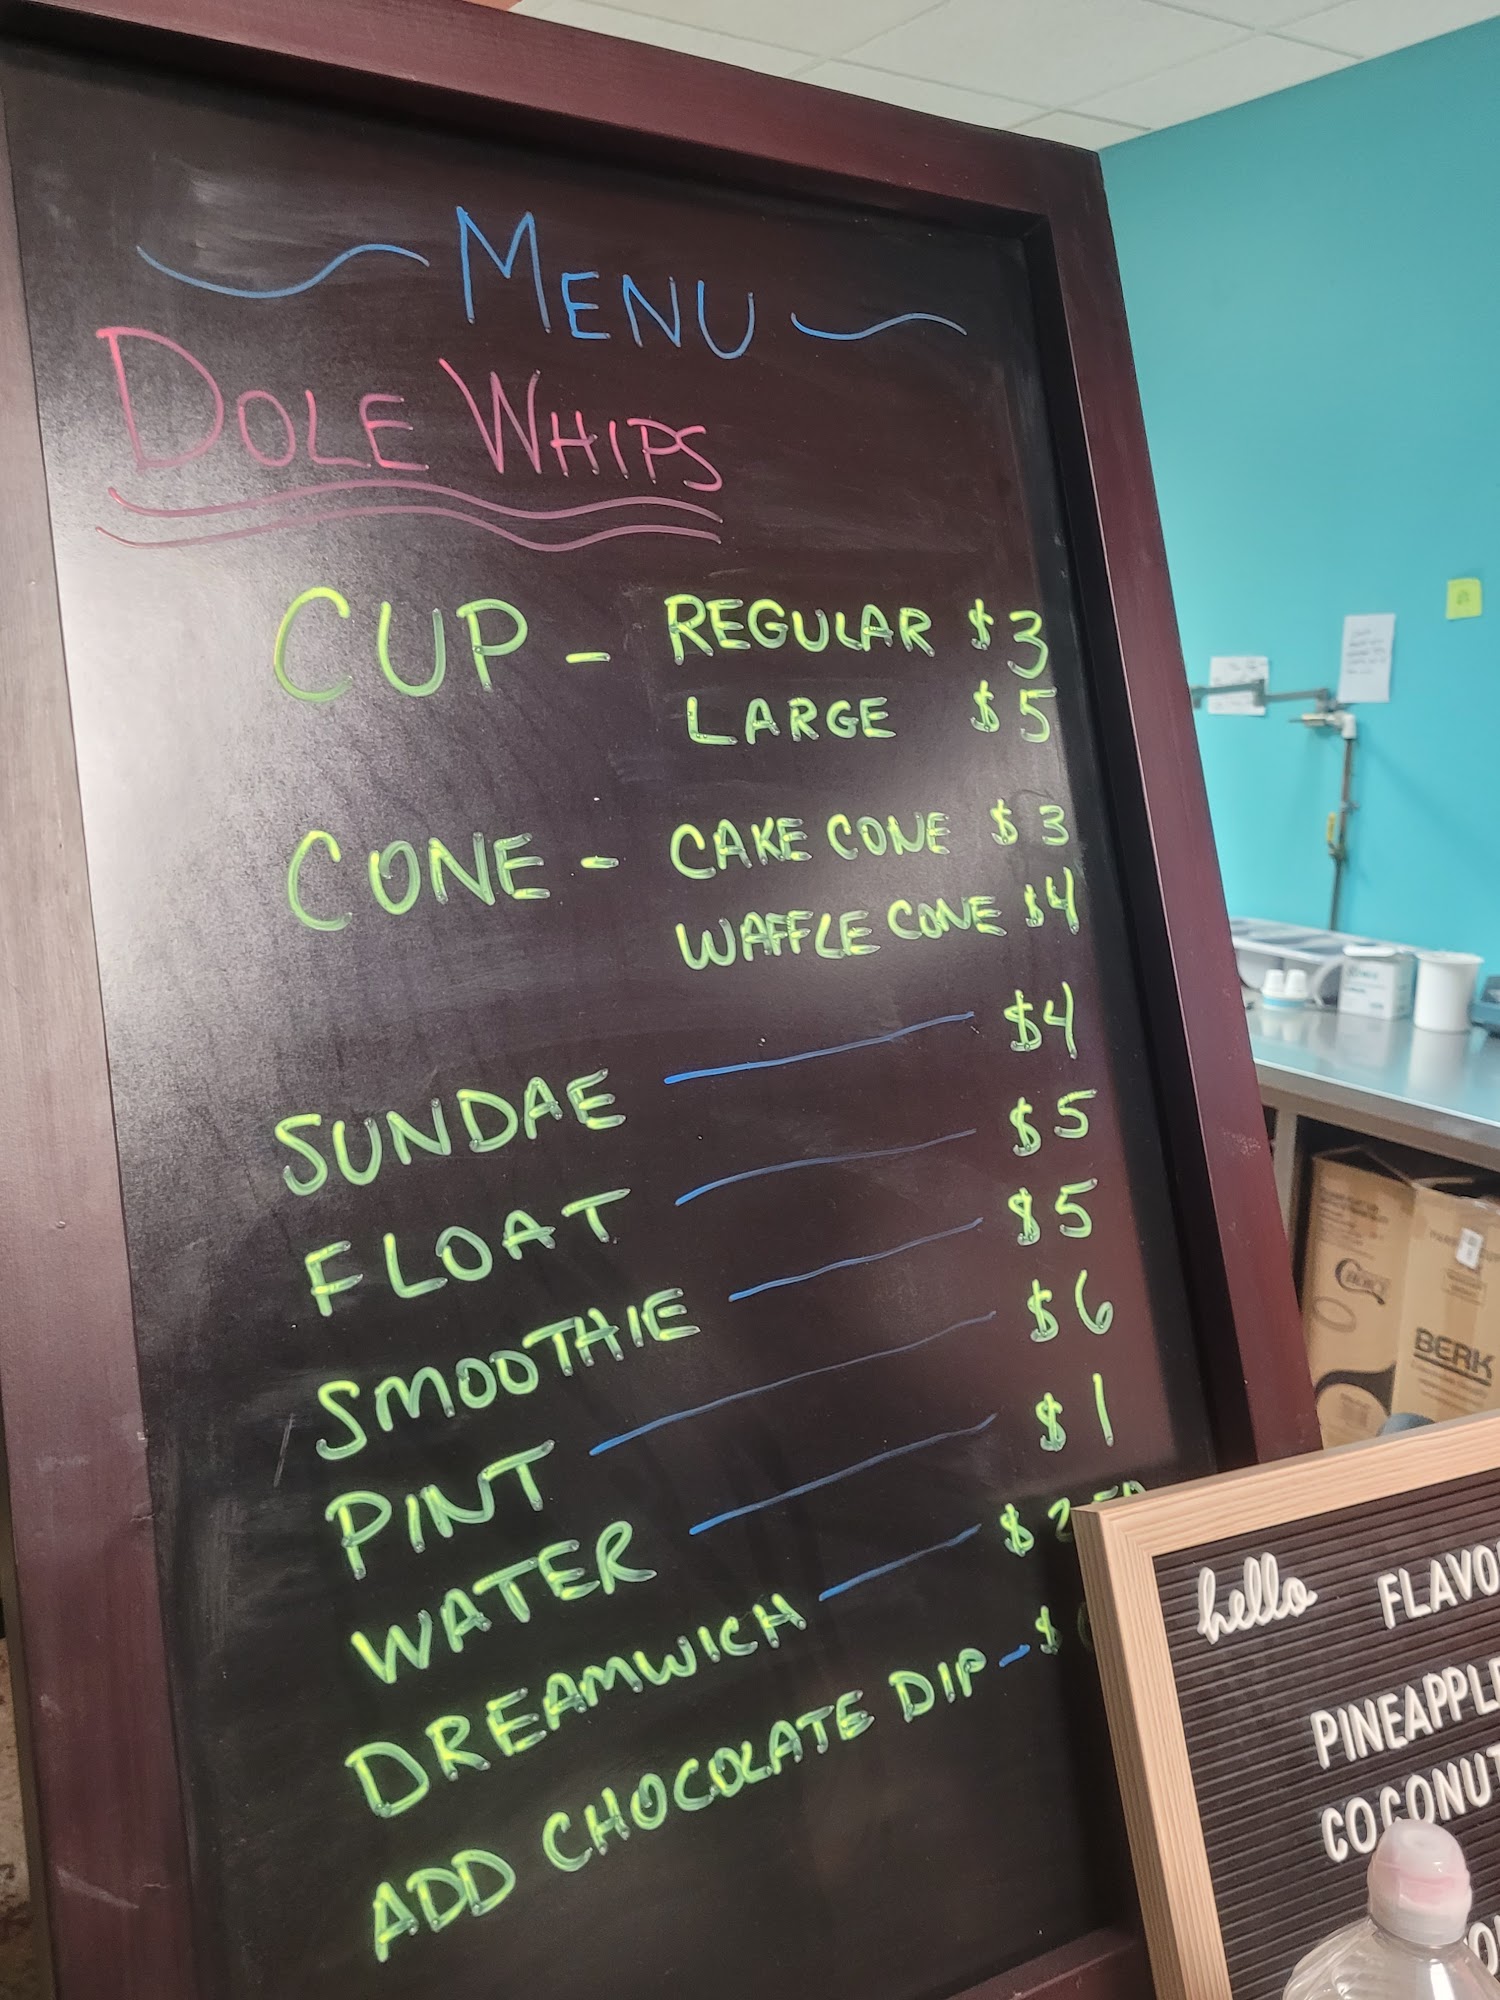 MENU
DOLE WHIPS
CUP - REGULAR $3
LARGE $5
CONE - CAKE CONE $3
WAFFLE CONE $4
SUNDAE $4
FLOAT $5
SMOOTHIE $5
PINT $6
WATER $1
DREAMWICH $
ADD CHOCOLATE DIP - $
hello
PINEAPPLE
COCONUT
BERK